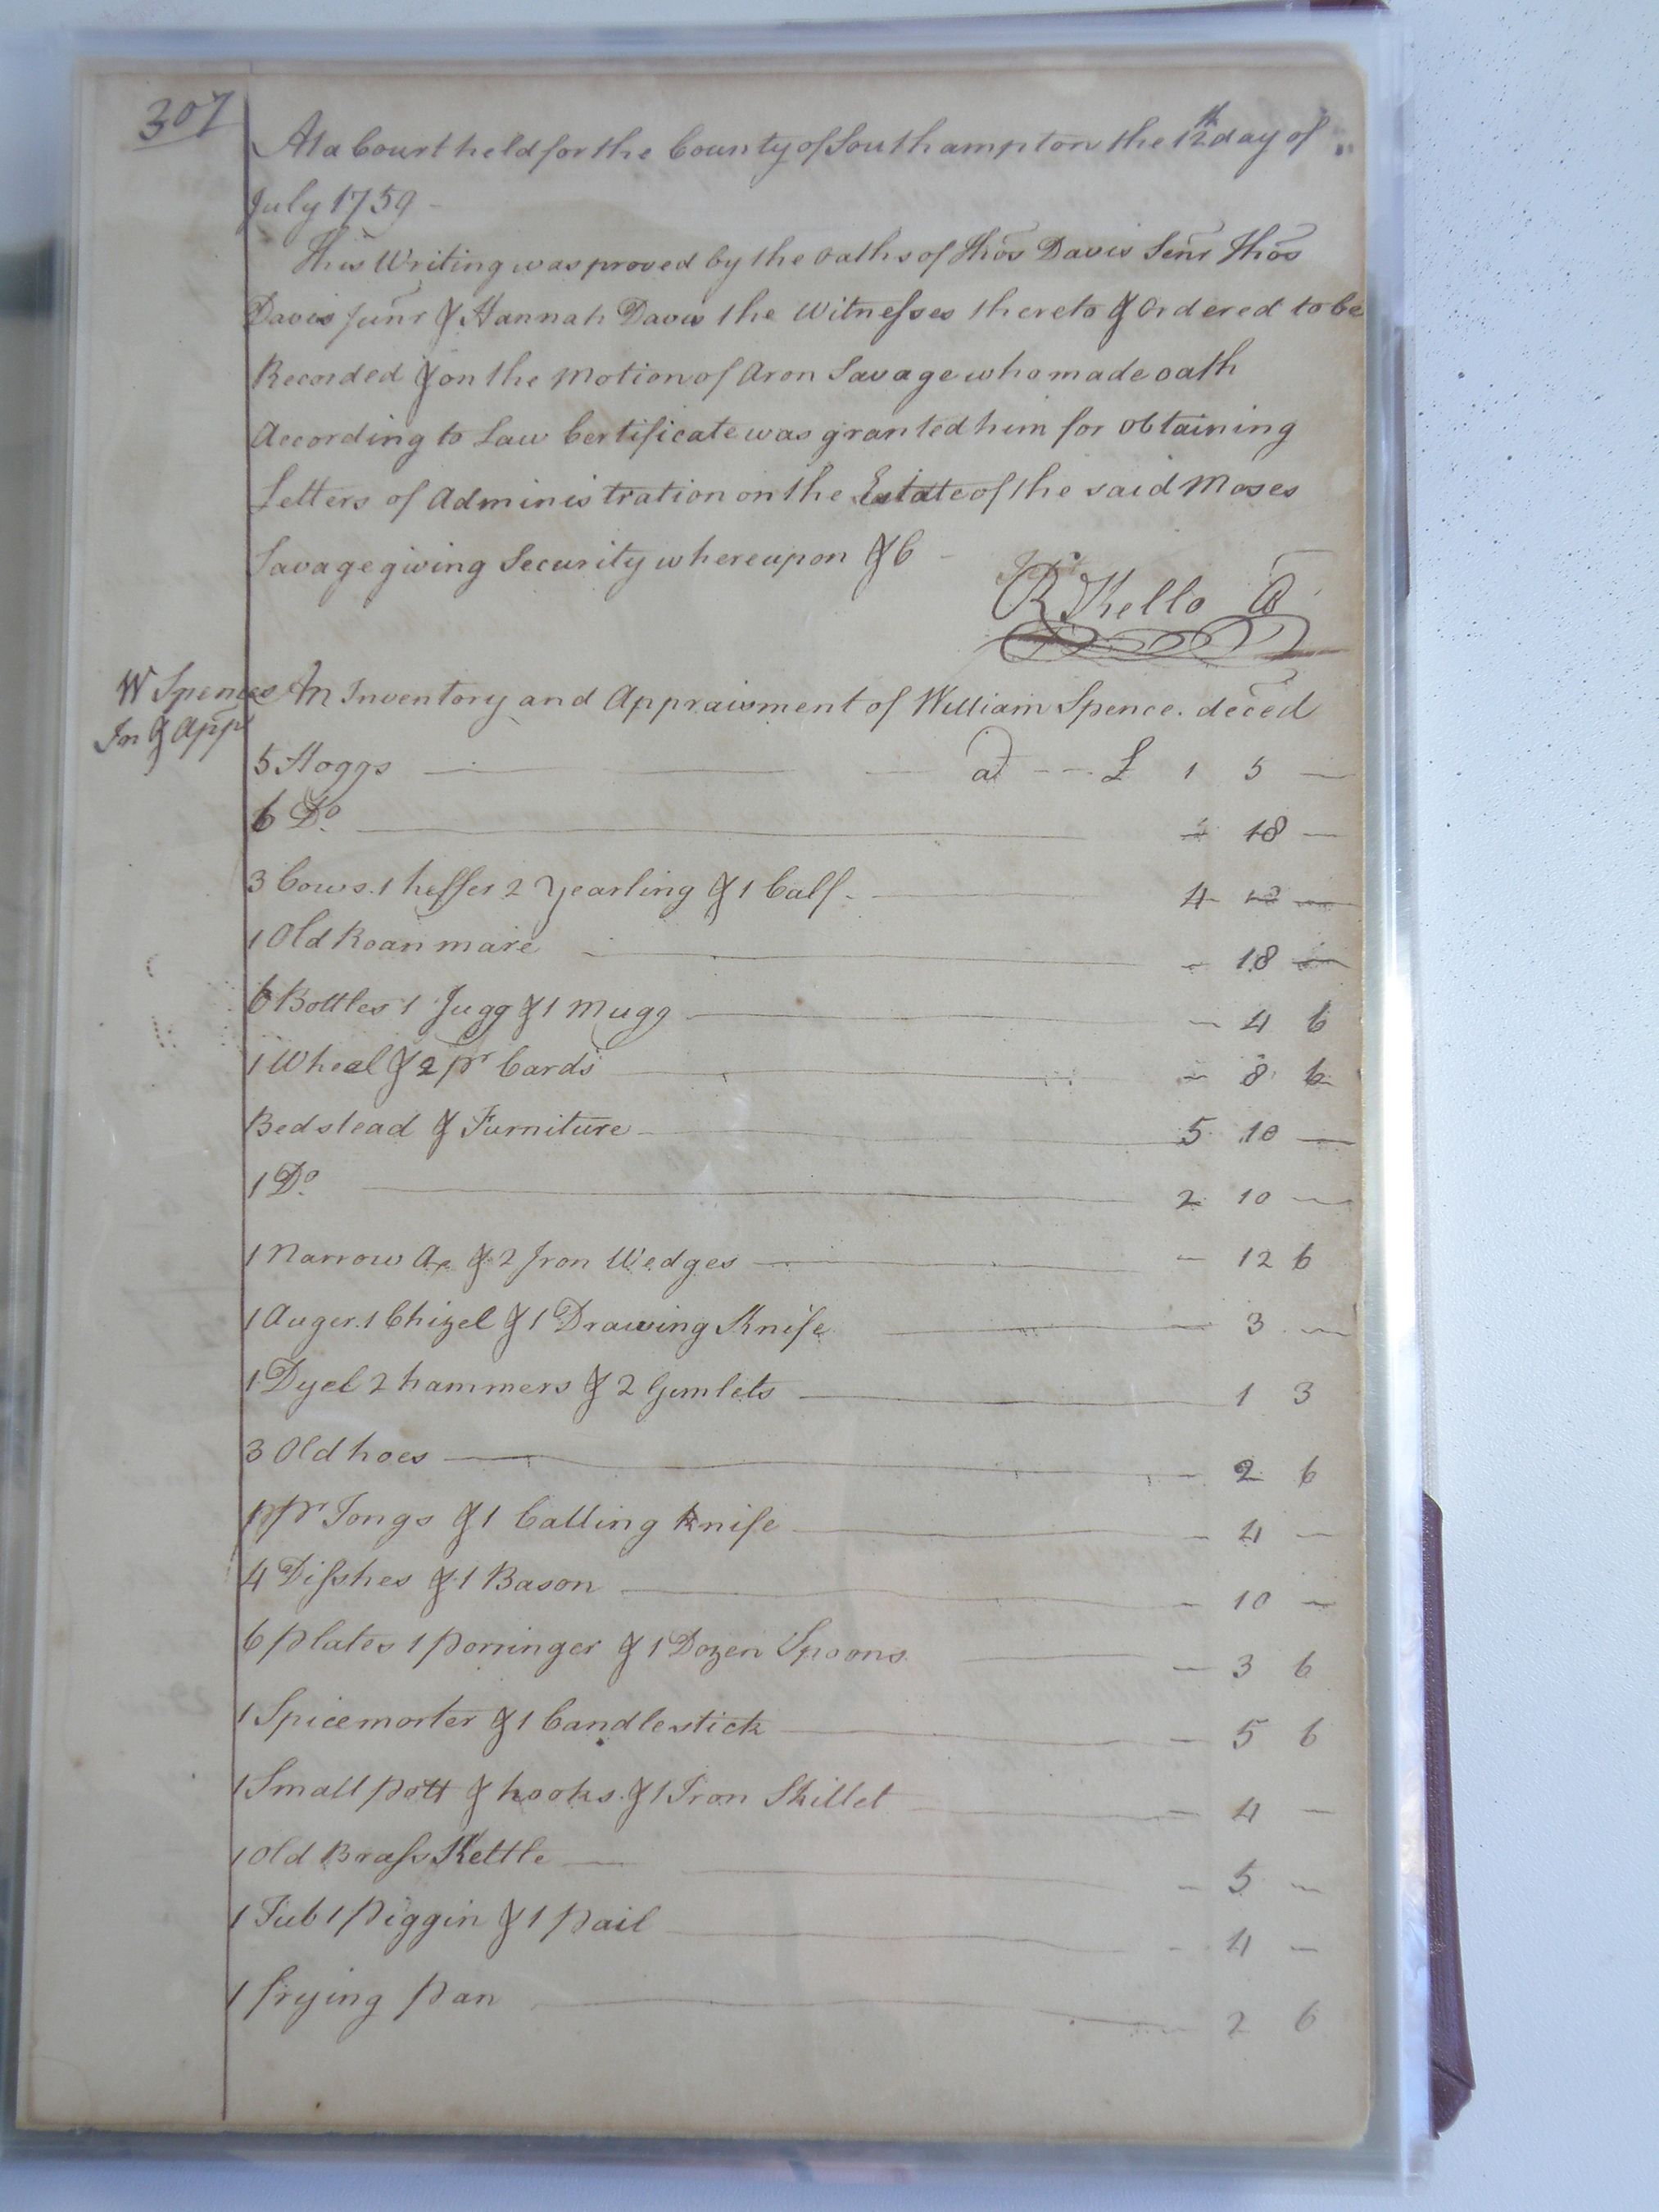 307
At a Court held for the County of Southampton the 12th day of
July 1759 -
This Writing was proved by the oaths of Thos Davis Senr Thos
Davis Junr & Hannah Davis the Witnesses thereto & Ordered to be
Recorded & on the Motion of Aron Savage who made oath
According to Law Certificate was granted him for obtaining
Letters of Administration on the Estate of the said Moses
Savage giving Security whereupon &C -
Test
R Kello
W Spences
In & App
An Inventory and Appraisment of William Spence. deced
5 Hoggs — a) --- £ 1 5 —
6 Do. — - 18 —
3 Cows. 1 heffer 2 Yearling & 1 Calf. — 4 —
1 Old Roan mare — - 18 —
6 Bottles 1 Jugg & 1 Mugg — - 4 6
1 Wheel & 2 pr Cards — - 8 6
Bedstead & Furniture — 5 10 —
1 Do. — 2 10 —
1 Narrow Ax & 2 Iron Wedges — - 12 6
1 Auger. 1 Chizel & 1 Drawing Knife — 3 —
1 2 hammers & 2 Gimlets — 1 3
3 Old hoes — - 2 6
1 pr Tongs & 1 Knife — - 4 —
4 Disshes & 1 Bason — - 10 —
6 plates 1 porringer & 1 Dozen Spoons — - 3 6
1 Spicemorter & 1 Candlestick — - 5 6
1 Small pott & hooks. & 1 Iron Skillet — - 4 —
1 Old Brass Kettle — - 5 —
1 Tub 1 piggin & 1 pail — - 4 —
1 frying pan — 2 6